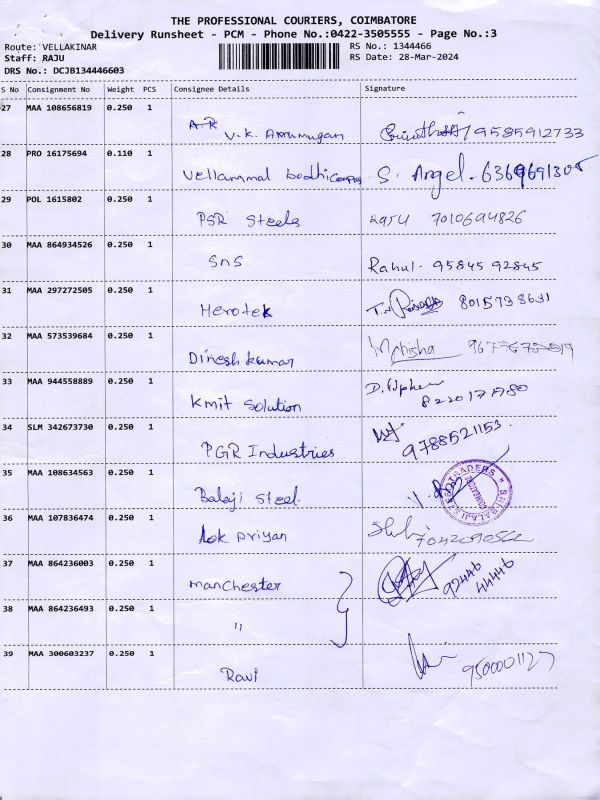 THE PROFESSIONAL COURIERS, COIMBATORE
Delivery Runsheet - PCM - Phone No.:0422-3505555 - Page No.:3
Route: VELLAKINAR RS No.: 1344466
Staff: RAJU RS Date: 28-Mar-2024
DRS No.: DCJB134446603
S No Consignment No Weight PCS Consignee Details Signature
27 MAA 108656819 0.250 1
V.K. Arrumugam 9585912733
28 PRO 16175694 0.110 1
Vellammal bodhi campus S. Angel. 6369691305
29 POL 1615802 0.250 1
PSR Steels 7010694826
30 MAA 864934526 0.250 1
SnS Rahul. 95845 92845
31 MAA 297272505 0.250 1
Herotek 8015738631
32 MAA 573539684 0.250 1
Dinesh kumar Monisha
33 MAA 944558889 0.250 1
Kmit Solution
34 SLM 342673730 0.250 1
PGR Industries 9788521153
35 MAA 108634563 0.250 1
Balaji Steel. SRI BALAJI STEEL TRADERS
36 MAA 107836474 0.250 1
Lok priyan
37 MAA 864236003 0.250 1
Manchester 92446
44446
38 MAA 864236493 0.250 1
"
39 MAA 300603237 0.250 1
Ravi 9500001127